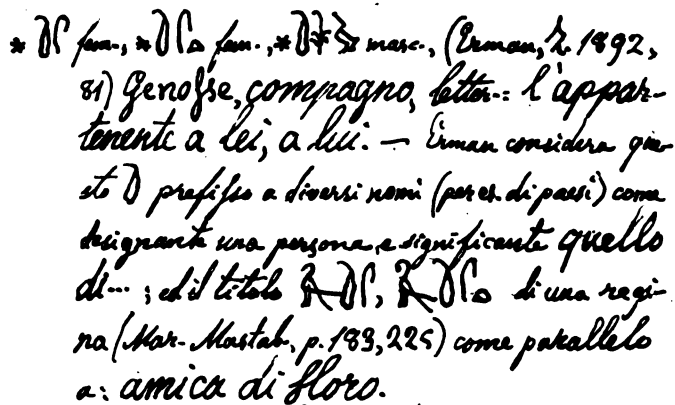 * fem., * fem., * masc., (Erman, Z. 1892,
81) Genosse, compagno, letter.: l'appar-
tenente a lei, a lui. — Erman considera que-
sto prefisso a diversi nomi (per es. di paesi) come
designante una persona, e significante quello
di... ; ed il titolo , di una regi-
na (Mar. Mastab., p. 183, 225) come parallelo
a: amica di Horo.